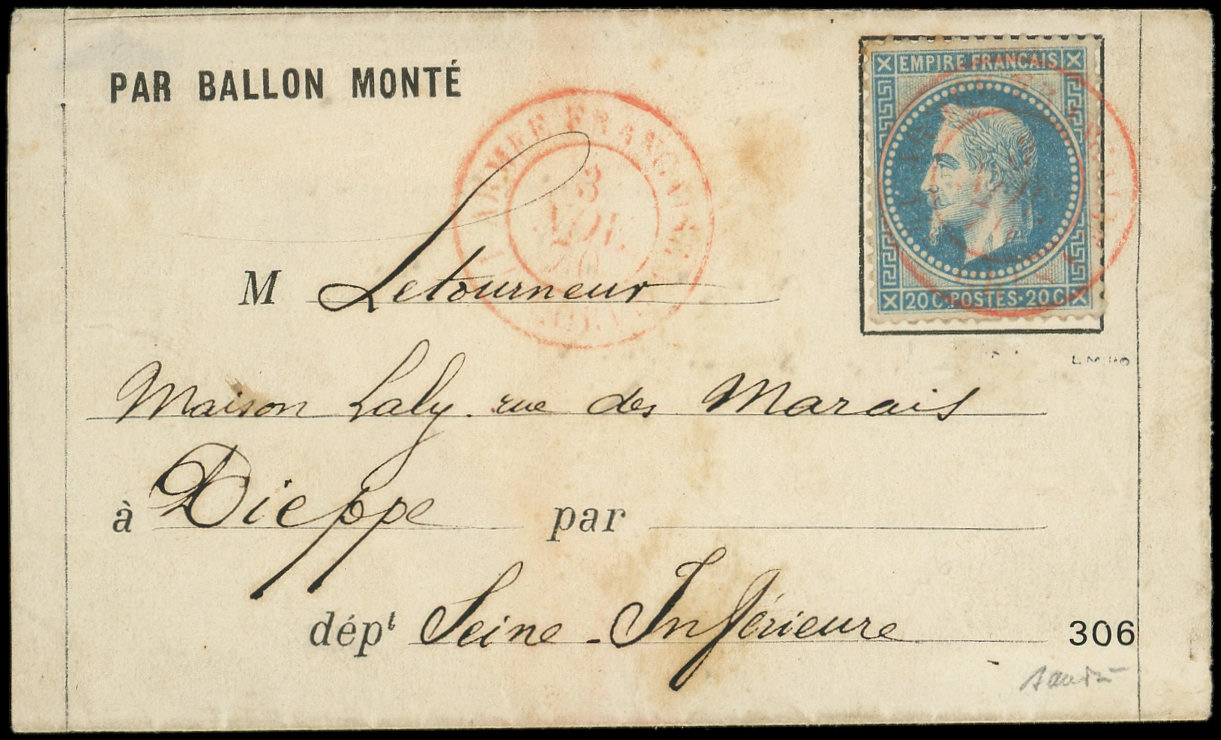 PAR BALLON MONTÉ
EMPIRE FRANCAIS
20 C. POSTES. 20 C
ARMÉE FRANÇAISE
3
NOV.
70
M Letourneur
Maison Laly. rue des Marais
à Dieppe par
dépt Seine-Inférieure
306